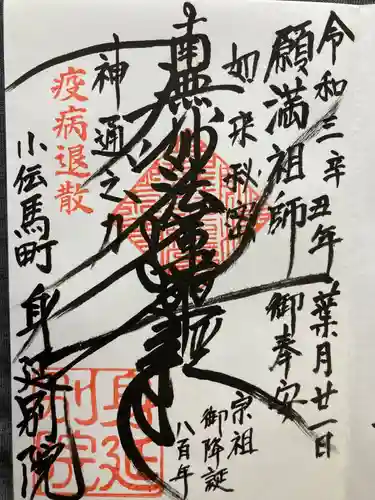 令和三辛丑年 葉月廿一日
願満祖師 御奉安
如来秘密
宗祖
御降誕
八百年
南無妙法蓮華経
神通之力
疫病退散
小伝馬町 身延別院
身延
別院